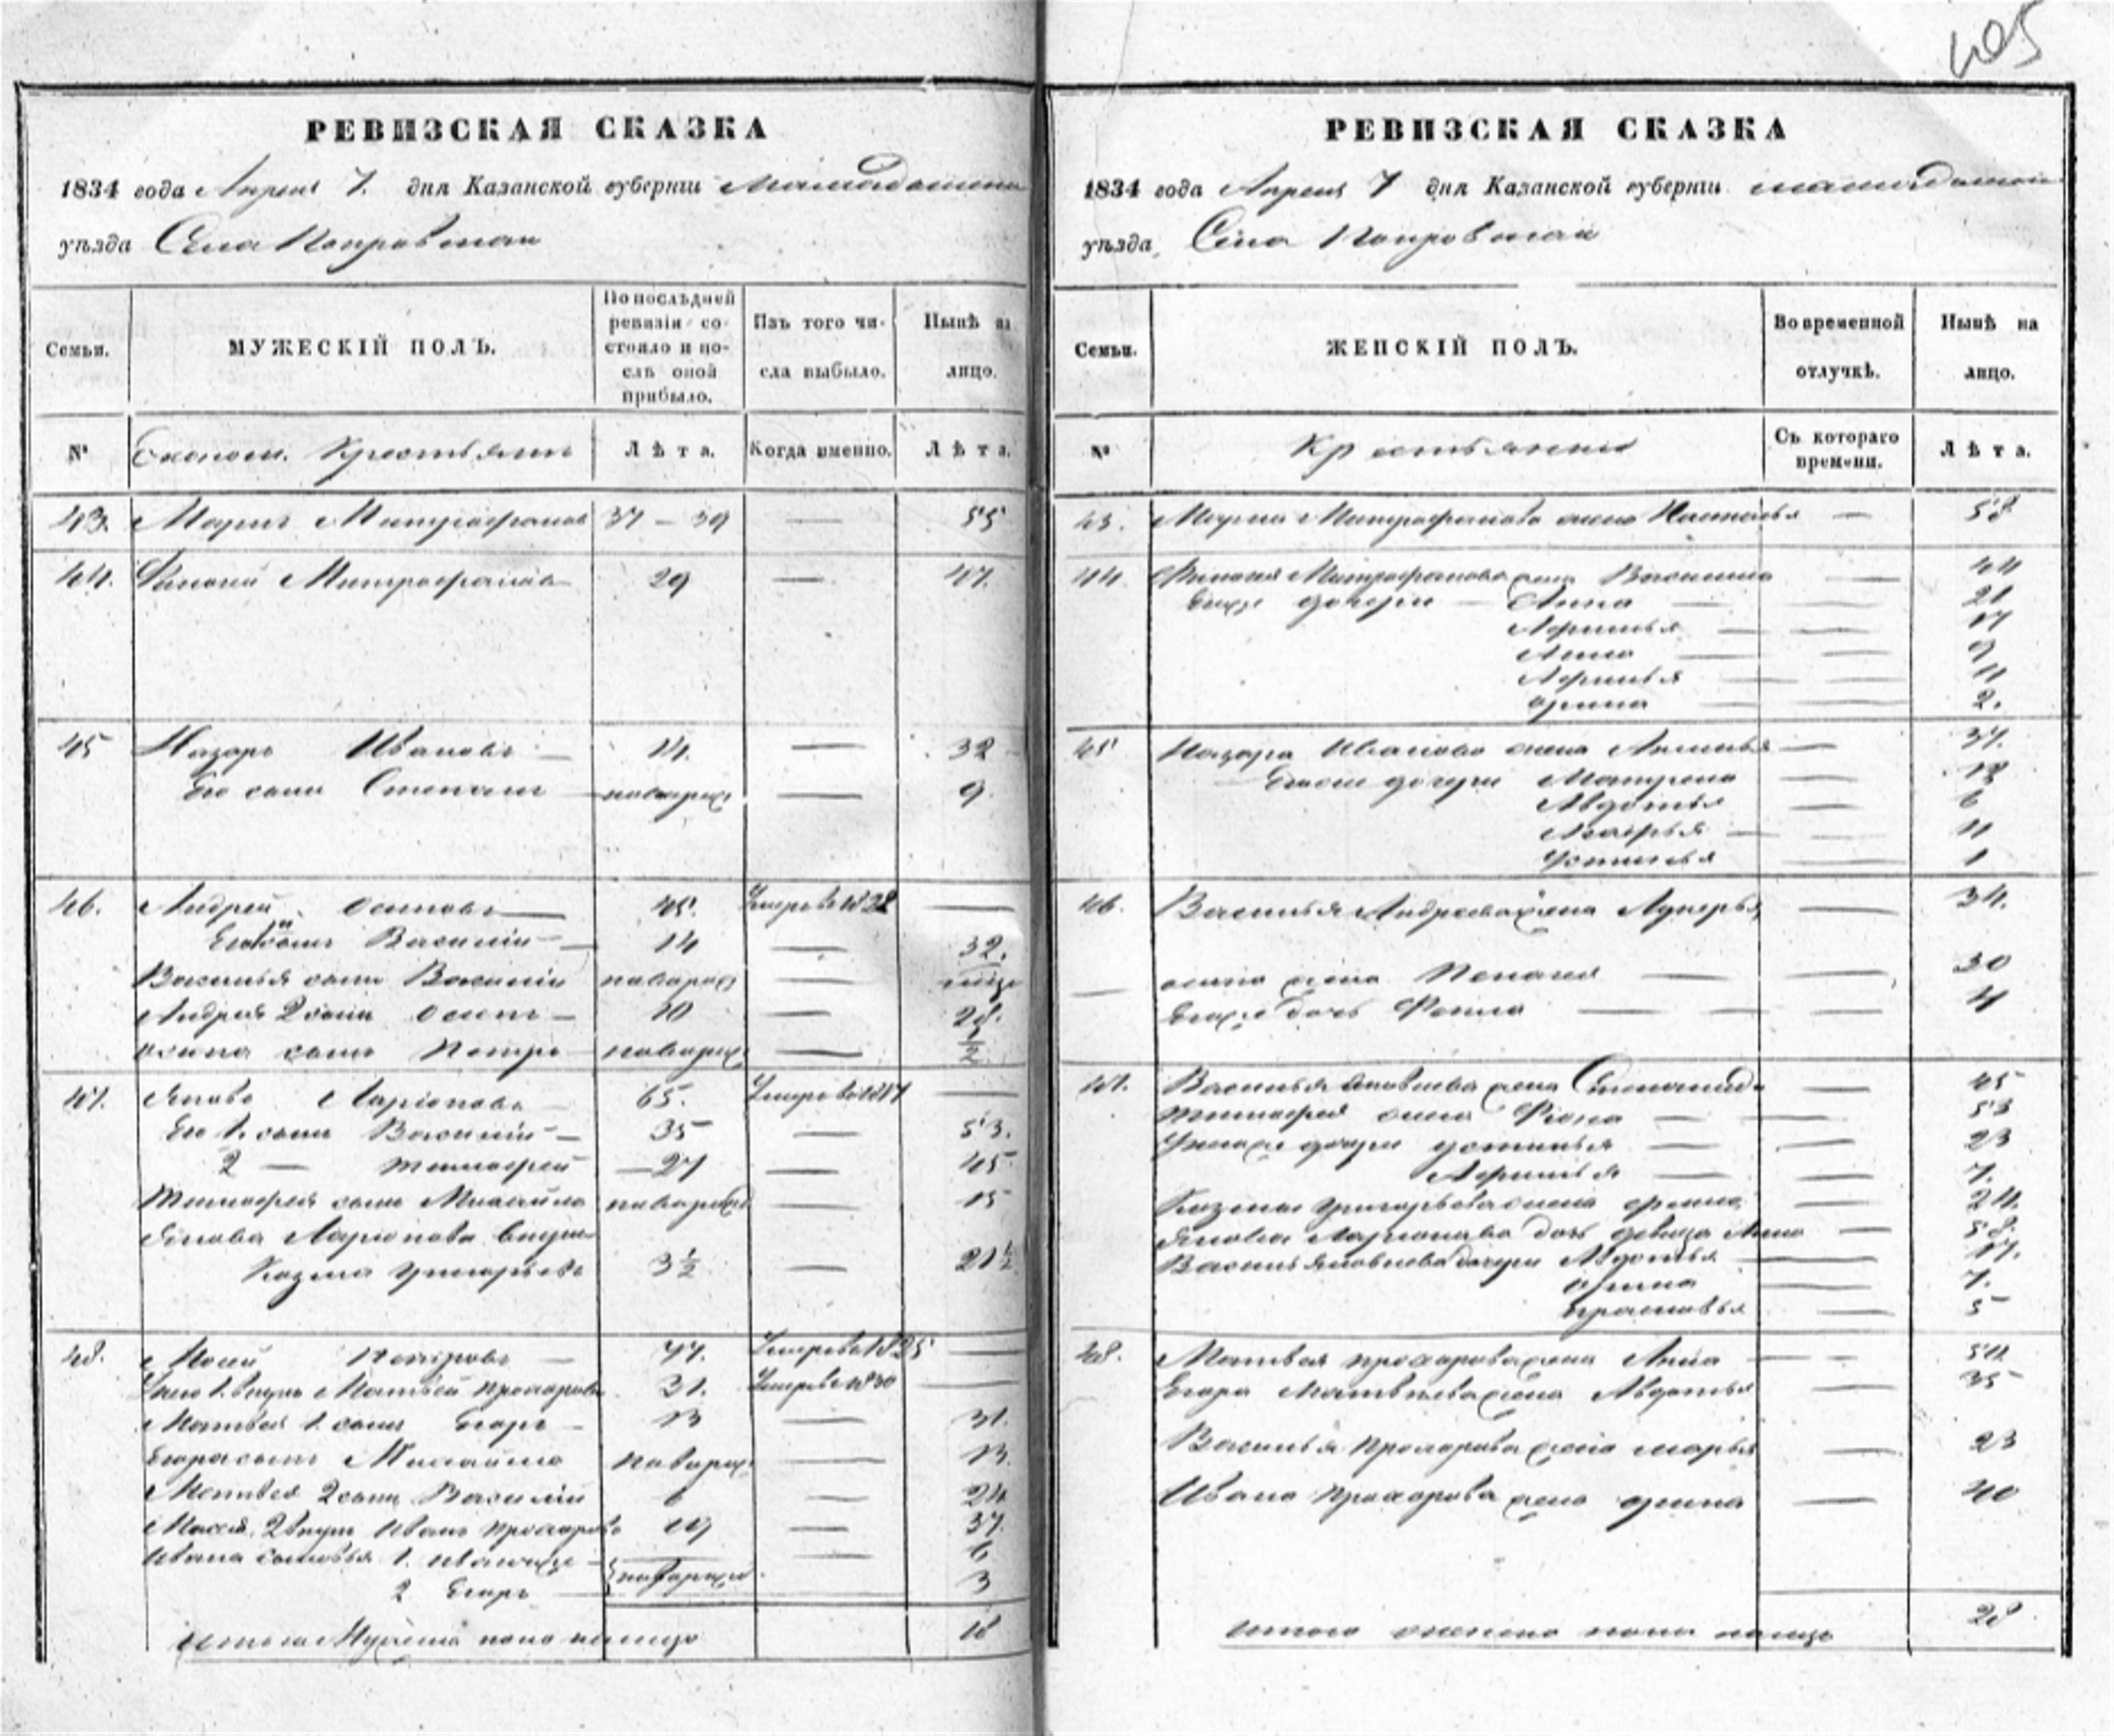 405
РЕВИЗСКАЯ СКАЗКА
1834 года Апреля 7. дня Казанской губернии
уѣзда Села Покровскаи
Семьи.
МУЖЕСКІЙ ПОЛЪ.
По послѣдней ревизіи состояло и послѣ оной прибыло.
Изъ того числа выбыло.
Нынѣ на лицо.
№ Эконом. Крестьянъ Лѣта. Когда именно. Лѣта.
43. Митрофановъ 37 — 39 — 55
44. Митрофановъ 29 — 47.
45 Назаръ Ивановъ — 14. — 32
Его сынъ Степанъ — — 9.
46. Андрей Осиповъ — 45. Умеръ въ 1828 —
Василій — 14 — 32.
Василья сынъ Василій —
Андрея 2 сынъ Осипъ — 10 — 28.
Осипа сынъ Петръ — ½
47. Яковъ Ларіоновъ — 65. Умеръ въ 1817 —
Его 1. сынъ Василій — 35 — 53.
2 — Тимофей — 27 — 45
Тимофея сынъ Михайла — 15
Якова Ларіонова внукъ
Козма Григорьевъ 3½ — 21½
48. Петровъ — 77. Умеръ въ 1825 —
1. внукъ Матвей Прохоровъ 31. Умеръ въ 1830 —
Матвея 1. сынъ Егоръ — 13 — 31.
Егора сынъ Михайло — 13.
Матвея 2 сынъ Василій 6 — 24
2 внукъ Иванъ Прохоровъ 19 — 37
Ивана сыновья 1. — 6
2 Егоръ — 3
Итого Мужеска пола на лицо 18
РЕВИЗСКАЯ СКАЗКА
1834 года Апреля 7 дня Казанской губернии
уѣзда, Села Покровскаи
Семьи.
ЖЕНСКІЙ ПОЛЪ.
Во временной отлучкѣ.
Нынѣ на лицо.
№ Съ котораго времени. Лѣта.
43. Митрофанова жена Наталья — 58
44. Митрофанова жена Василиса — 44
дочери — Анна — 21
Афимья — 17
Анна — 9
Афимья — 4
Орина — 2.
45 Назара Иванова жена — 37.
дочери Матрена — 12
Авдотья — 6
— 4
Устинья — 1
46. Василья Андреева жена — 34.
Осипа жена Пелагея — 30
дочь Фекла — 4
47. Василья Яковлева жена Степанида — 45
Тимофея жена — 53
дочери Устинья — 23
Афимья — 7.
Козмы Григорьева жена — 24.
Якова Ларионова дочь девица Анна — 58.
Василья Яковлева дочери Авдотья — 17.
Орина — 7.
Прасковья — 5
48. Матвея Прохорова жена Анна — 54
Егора Матвеева жена Авдотья — 35
Василья Прохорова жена Марья — 23
Ивана Прохорова жена Орина — 40
Итого женска пола налицо 28